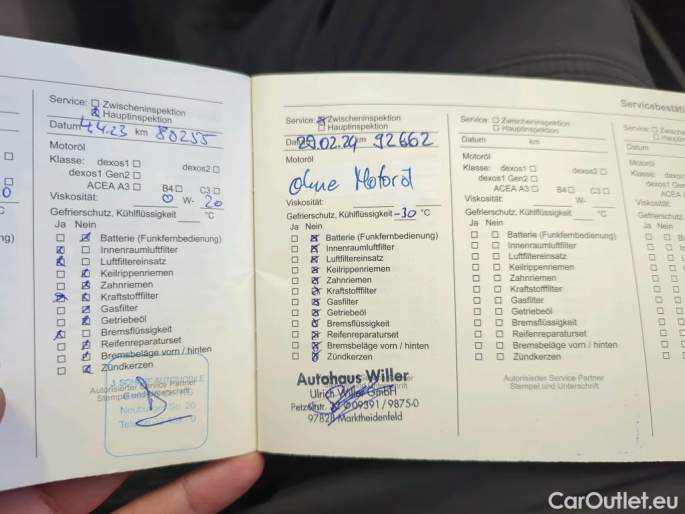 Service: Zwischeninspektion
Hauptinspektion
Datum 4.4.23 km 80255
Motoröl
Klasse: dexos1 dexos2
dexos1 Gen2
ACEA A3 B4 C3
Viskosität: 0 W- 20
Gefrierschutz, Kühlflüssigkeit °C
Ja Nein
Batterie (Funkfernbedienung)
Innenraumluftfilter
Luftfiltereinsatz
Keilrippenriemen
Zahnriemen
Kraftstofffilter
Gasfilter
Getriebeöl
Bremsflüssigkeit
Reifenreparaturset
Bremsbeläge vorn / hinten
Zündkerzen
Autorisierter Service Partner
Stempel und Unterschrift
Service: Zwischeninspektion
Hauptinspektion
29.02.24 km 92662
Motoröl
Ohne Motoröl
Viskosität:
Gefrierschutz, Kühlflüssigkeit -30 °C
Ja Nein
Batterie (Funkfernbedienung)
Innenraumluftfilter
Luftfiltereinsatz
Keilrippenriemen
Zahnriemen
Kraftstofffilter
Gasfilter
Getriebeöl
Bremsflüssigkeit
Reifenreparaturset
Bremsbeläge vorn / hinten
Zündkerzen
Autohaus Willer
Ulrich Willer GmbH
09391 / 9875-0
97828 Marktheidenfeld
Servicebestäti
Service: Zwischeninspektion
Hauptinspektion
Datum km
Motoröl
Klasse: dexos1 dexos2
dexos1 Gen2
ACEA A3 B4 C3
Viskosität: W-
Gefrierschutz, Kühlflüssigkeit °C
Ja Nein
Batterie (Funkfernbedienung)
Innenraumluftfilter
Luftfiltereinsatz
Keilrippenriemen
Zahnriemen
Kraftstofffilter
Gasfilter
Getriebeöl
Bremsflüssigkeit
Reifenreparaturset
Bremsbeläge vorn / hinten
Zündkerzen
Autorisierter Service Partner
Stempel und Unterschrift
Service:
Datum
Motoröl
Klasse:
Viskosität:
Ja Nein
CarOutlet.eu